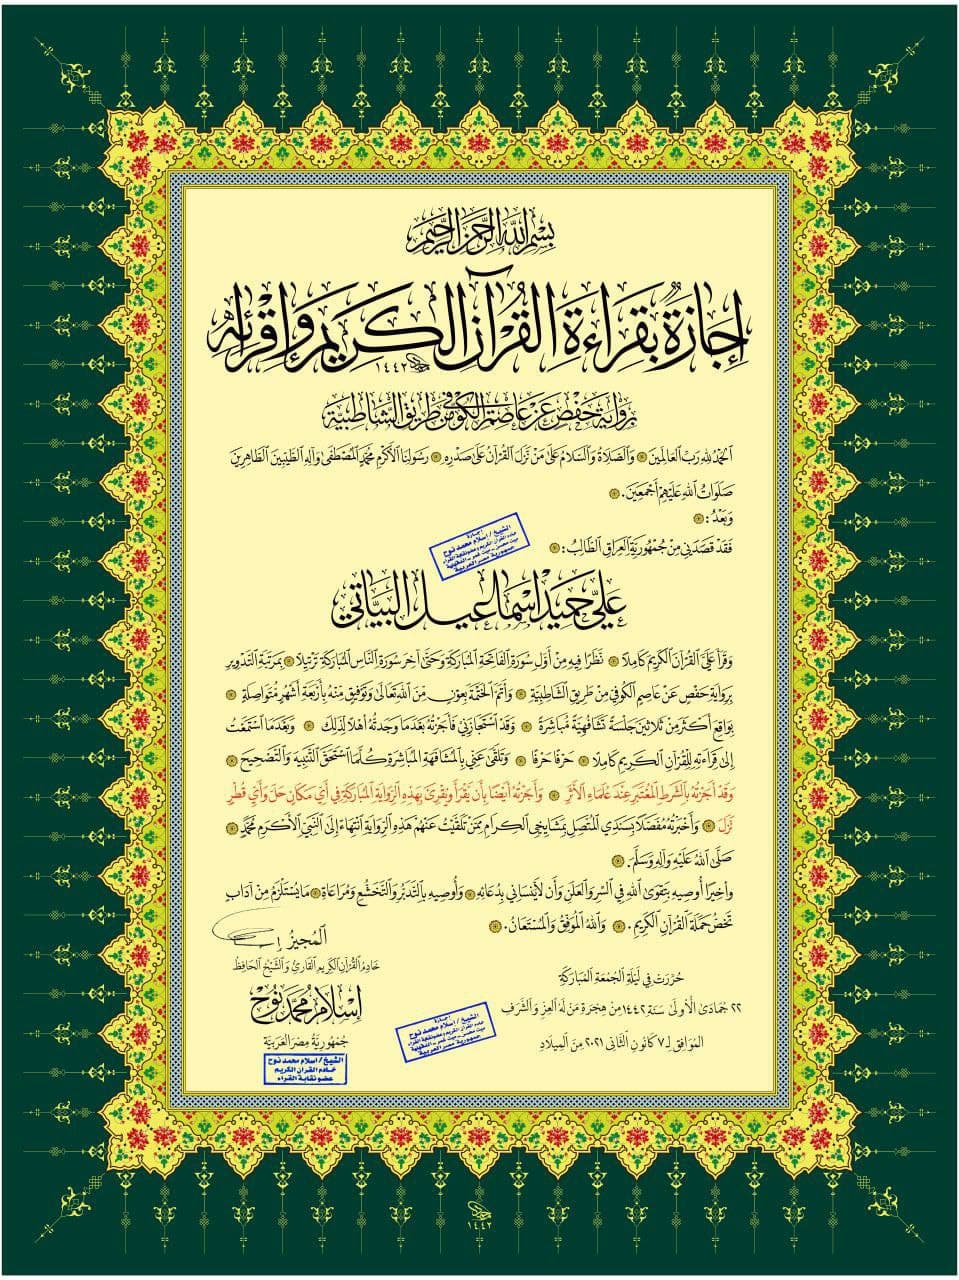 بِسْمِ اللهِ الرَّحْمٰنِ الرَّحِيمِ
إِجَازَةٌ بِقِرَاءَةِ الْقُرْآنِ الْكَرِيمِ وَإِقْرَائِهِ
١٤٤٢
بِرِوَايَةِ حَفْصٍ عَنْ عَاصِمٍ الْكُوفِيِّ مِنْ طَرِيقِ الشَّاطِبِيَّةِ
اَلْحَمْدُ لِلّٰهِ رَبِّ الْعَالَمِينَ وَالصَّلَاةُ وَالسَّلَامُ عَلَىٰ مَنْ نَزَلَ الْقُرْآنُ عَلَىٰ صَدْرِهِ رَسُولِنَا الْأَكْرَمِ مُحَمَّدٍ الْمُصْطَفَىٰ وَآلِهِ الطَّيِّبِينَ الطَّاهِرِينَ
صَلَوَاتُ اللهِ عَلَيْهِمْ أَجْمَعِينَ.
وَبَعْدُ:
فَقَدْ قَصَدَنِي مِنْ جُمْهُورِيَّةِ الْعِرَاقِ الطَّالِبُ:
إجازة
الشيخ / اسلام محمد نوح
خادم القرآن الكريم وعضو نقابة القراء
جمهورية مصر العربية
عَلِيّ حَمِيد إِسْمَاعِيل الْبَيَّاتِي
وَقَرَأَ عَلَيَّ الْقُرْآنَ الْكَرِيمَ كَامِلًا نَظَرًا فِيهِ مِنْ أَوَّلِ سُورَةِ الْفَاتِحَةِ الْمُبَارَكَةِ وَحَتَّىٰ آخِرِ سُورَةِ النَّاسِ الْمُبَارَكَةِ تَرْتِيلًا بِمَرْتَبَةِ التَّدْوِيرِ
بِرِوَايَةِ حَفْصٍ عَنْ عَاصِمٍ الْكُوفِيِّ مِنْ طَرِيقِ الشَّاطِبِيَّةِ وَأَتَمَّ الْخَتْمَةَ بِعَوْنٍ مِنَ اللهِ تَعَالَىٰ وَتَوْفِيقٍ مِنْهُ بِأَرْبَعَةِ أَشْهُرٍ مُتَوَاصِلَةٍ
بِوَاقِعِ أَكْثَرَ مِنْ ثَلَاثِينَ جَلْسَةً تَشَافُهِيَّةً مُبَاشَرَةً وَقَدِ اسْتَجَازَنِي فَأَجَزْتُهُ بَعْدَمَا وَجَدْتُهُ أَهْلًا لِذَلِكَ وَبَعْدَمَا اسْتَمَعْتُ
إِلَىٰ قِرَاءَتِهِ لِلْقُرْآنِ الْكَرِيمِ كَامِلًا حَرْفًا حَرْفًا وَتَلَقَّىٰ عَنِّي بِالْمُشَافَهَةِ الْمُبَاشِرَةِ كُلَّمَا اسْتَحَقَّ التَّنْبِيهَ وَالتَّصْحِيحَ
وَقَدْ أَجَزْتُهُ بِالشَّرْطِ الْمُعْتَبَرِ عِنْدَ عُلَمَاءِ الْأَثَرِ وَأَجَزْتُهُ أَيْضًا بِأَنْ يَقْرَأَ وَيُقْرِئَ بِهَذِهِ الرِّوَايَةِ الْمُبَارَكَةِ فِي أَيِّ مَكَانٍ حَلَّ وَأَيِّ قُطْرٍ
نَزَلَ وَأَخْبَرْتُهُ مُفَصَّلًا بِسَنَدِي الْمُتَّصِلِ بِمَشَايِخِي الْكِرَامِ مِمَّنْ تَلَقَّيْتُ عَنْهُمْ هَذِهِ الرِّوَايَةَ انْتِهَاءً إِلَى النَّبِيِّ الْأَكْرَمِ مُحَمَّدٍ
صَلَّى اللهُ عَلَيْهِ وَآلِهِ وَسَلَّمَ.
وَأَخِيرًا أُوصِيهِ بِتَقْوَى اللهِ فِي السِّرِّ وَالْعَلَنِ وَأَنْ لَا يَنْسَانِي بِدُعَائِهِ وَأُوصِيهِ بِالتَّدَبُّرِ وَالتَّخَشُّعِ وَمُرَاعَاةِ مَا يَسْتَلْزِمُ مِنْ آدَابٍ
تَخُصُّ حَمَلَةَ الْقُرْآنِ الْكَرِيمِ. وَاللهُ الْمُوَفِّقُ وَالْمُسْتَعَانُ.
اَلْمُجِيزُ
خَادِمُ الْقُرْآنِ الْكَرِيمِ الْقَارِئُ وَالشَّيْخُ الْحَافِظُ
إِسْلَام مُحَمَّد نُوح
جُمْهُورِيَّةُ مِصْرَ الْعَرَبِيَّةِ
الشيخ / اسلام محمد نوح
خادم القرآن الكريم
عضو نقابة القراء
حُرِّرَتْ فِي لَيْلَةِ الْجُمُعَةِ الْمُبَارَكَةِ
٢٢ جُمَادَى الْأُولَىٰ سَنَةَ ١٤٤٢ مِنْ هِجْرَةِ مَنْ لَهُ الْعِزُّ وَالشَّرَفُ
الْمُوَافِقِ لِـ ٧ كَانُونِ الثَّانِي ٢٠٢١ مِنَ الْمِيلَادِ
إجازة
الشيخ / اسلام محمد نوح
خادم القرآن الكريم وعضو نقابة القراء
جمهورية مصر العربية
١٤٤٢